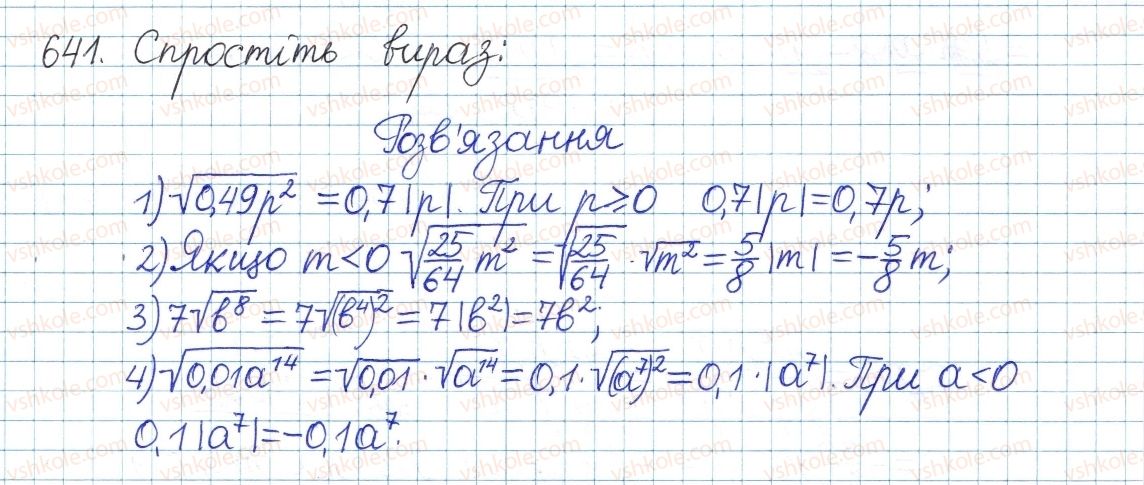 641. Спростіть вираз:
Розв'язання
1) √(0,49p²) = 0,7|p|. При p ≥ 0 0,7|p| = 0,7p;
2) Якщо m < 0 √(25/64 m²) = √(25/64) · √m² = 5/8 |m| = -5/8 m;
3) 7√(в⁸) = 7√((в⁴)²) = 7|в²| = 7в²;
4) √(0,01a¹⁴) = √(0,01) · √(a¹⁴) = 0,1 · √((a⁷)²) = 0,1 · |a⁷|. При a < 0
0,1|a⁷| = -0,1a⁷.